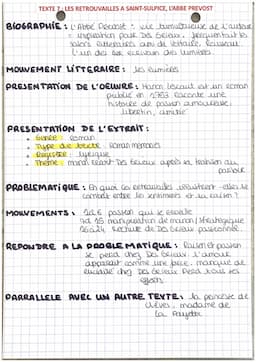 TEXTE 7 : LES RETROUVAILLES A SAINT-SULPICE, L'ABBE PREVOST
BIOGRAPHIE : L'Abbé Prévost : vie tumultueuse de l'auteur
inspiration pour Des Grieux, fréquentait les
salons littéraires avec de Voltaire, Rousseau.
L'un des écrivains des lumières.
MOUVEMENT LITTERAIRE : les lumières
PRESENTATION DE L'OEUVRE : Manon Lescaut est un roman
publié en 1753 raconte une
histoire de passion amoureuse,
libertin, amitié
PRESENTATION DE L'EXTRAIT :
Genre : roman
Type de texte : roman mémoires
Registre : lyrique
Thème : Manon Des Grieux après sa trahison au
parloir
PROBLEMATIQUE : En quoi les retrouvailles -elles le
combat entre les sentiments et la raison ?
MOUVEMENTS : passion qui se
manipulation de Manon stratégique
rechute de Des Grieux passionnée.
REPONDRE A LA PROBLEMATIQUE : Raison et passion
se perd chez Des Grieux. L'amour
apparait comme une force, manque de
lucidité chez Des Grieux perd tous ses
PARRALELE AVEC UN AUTRE TEXTE : la princesse de
Clèves, madame de
La Fayette